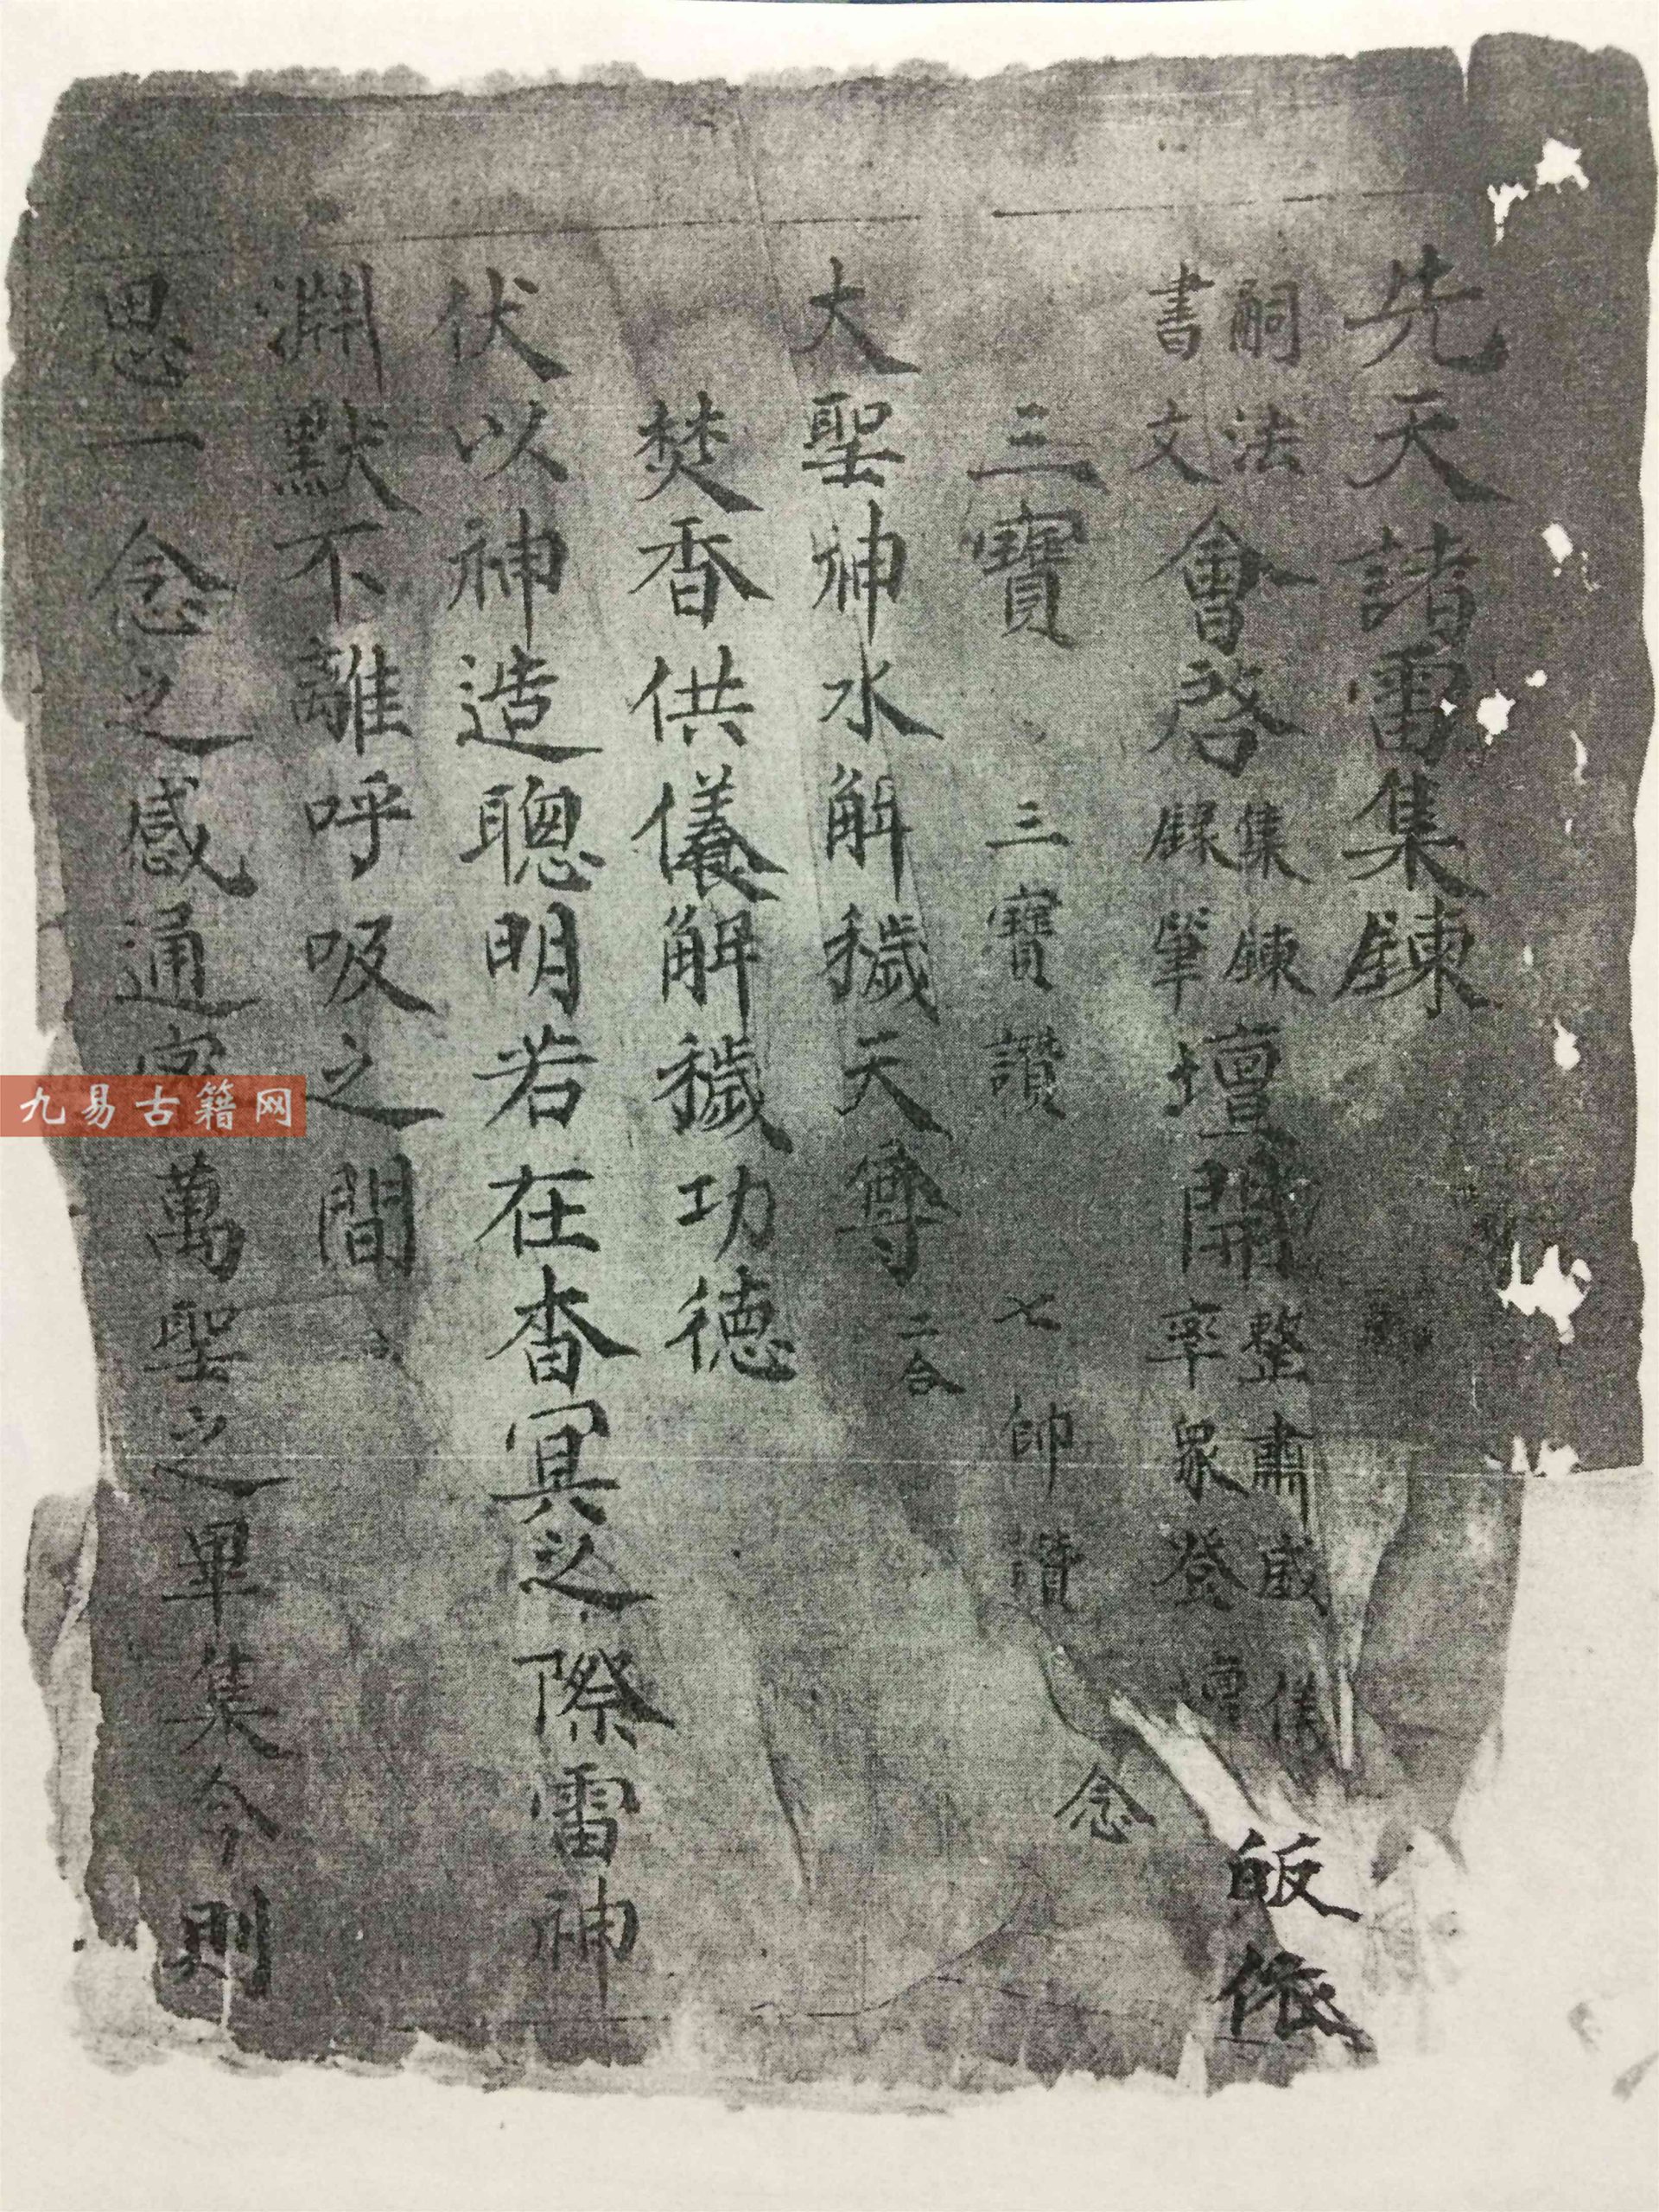 先天諸雷集鍊
嗣法書文會啓集鍊錄筆壇開整肅威儀率眾登壇皈依
三寶 三寶讚 七帥讚 念
大聖神水解穢天尊 二合
焚香供儀解穢功德
伏以神造聰明若在杳冥之際雷神
淵默不離呼吸之間
思一念之感通 萬聖之畢集今則
九易古籍网